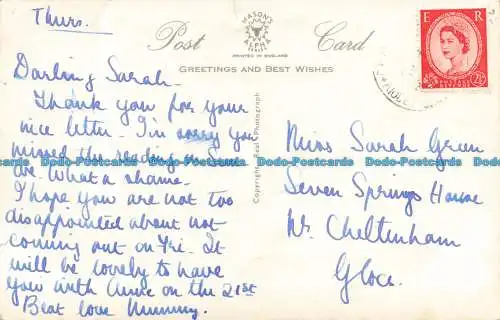 Thurs.
MASON'S
ALPHA
SERIES
Post Card
PRINTED IN ENGLAND
GREETINGS AND BEST WISHES
E R
2½
Darling Sarah -
Thank you for your
nice letter. I'm sorry you
missed the reading
are. What a shame.
I hope you are not too
disappointed about not
coming out on Fri. It
will be lovely to have
you with Anne on the 21st
Best love Mummy.
Copyright Real Photograph
Miss Sarah Green
Seven Springs House
Nr. Cheltenham
Glos.
Dodo-Postcards Dodo-Postcards Dodo-Postcards Dodo-Postcards Dodo-Postcards